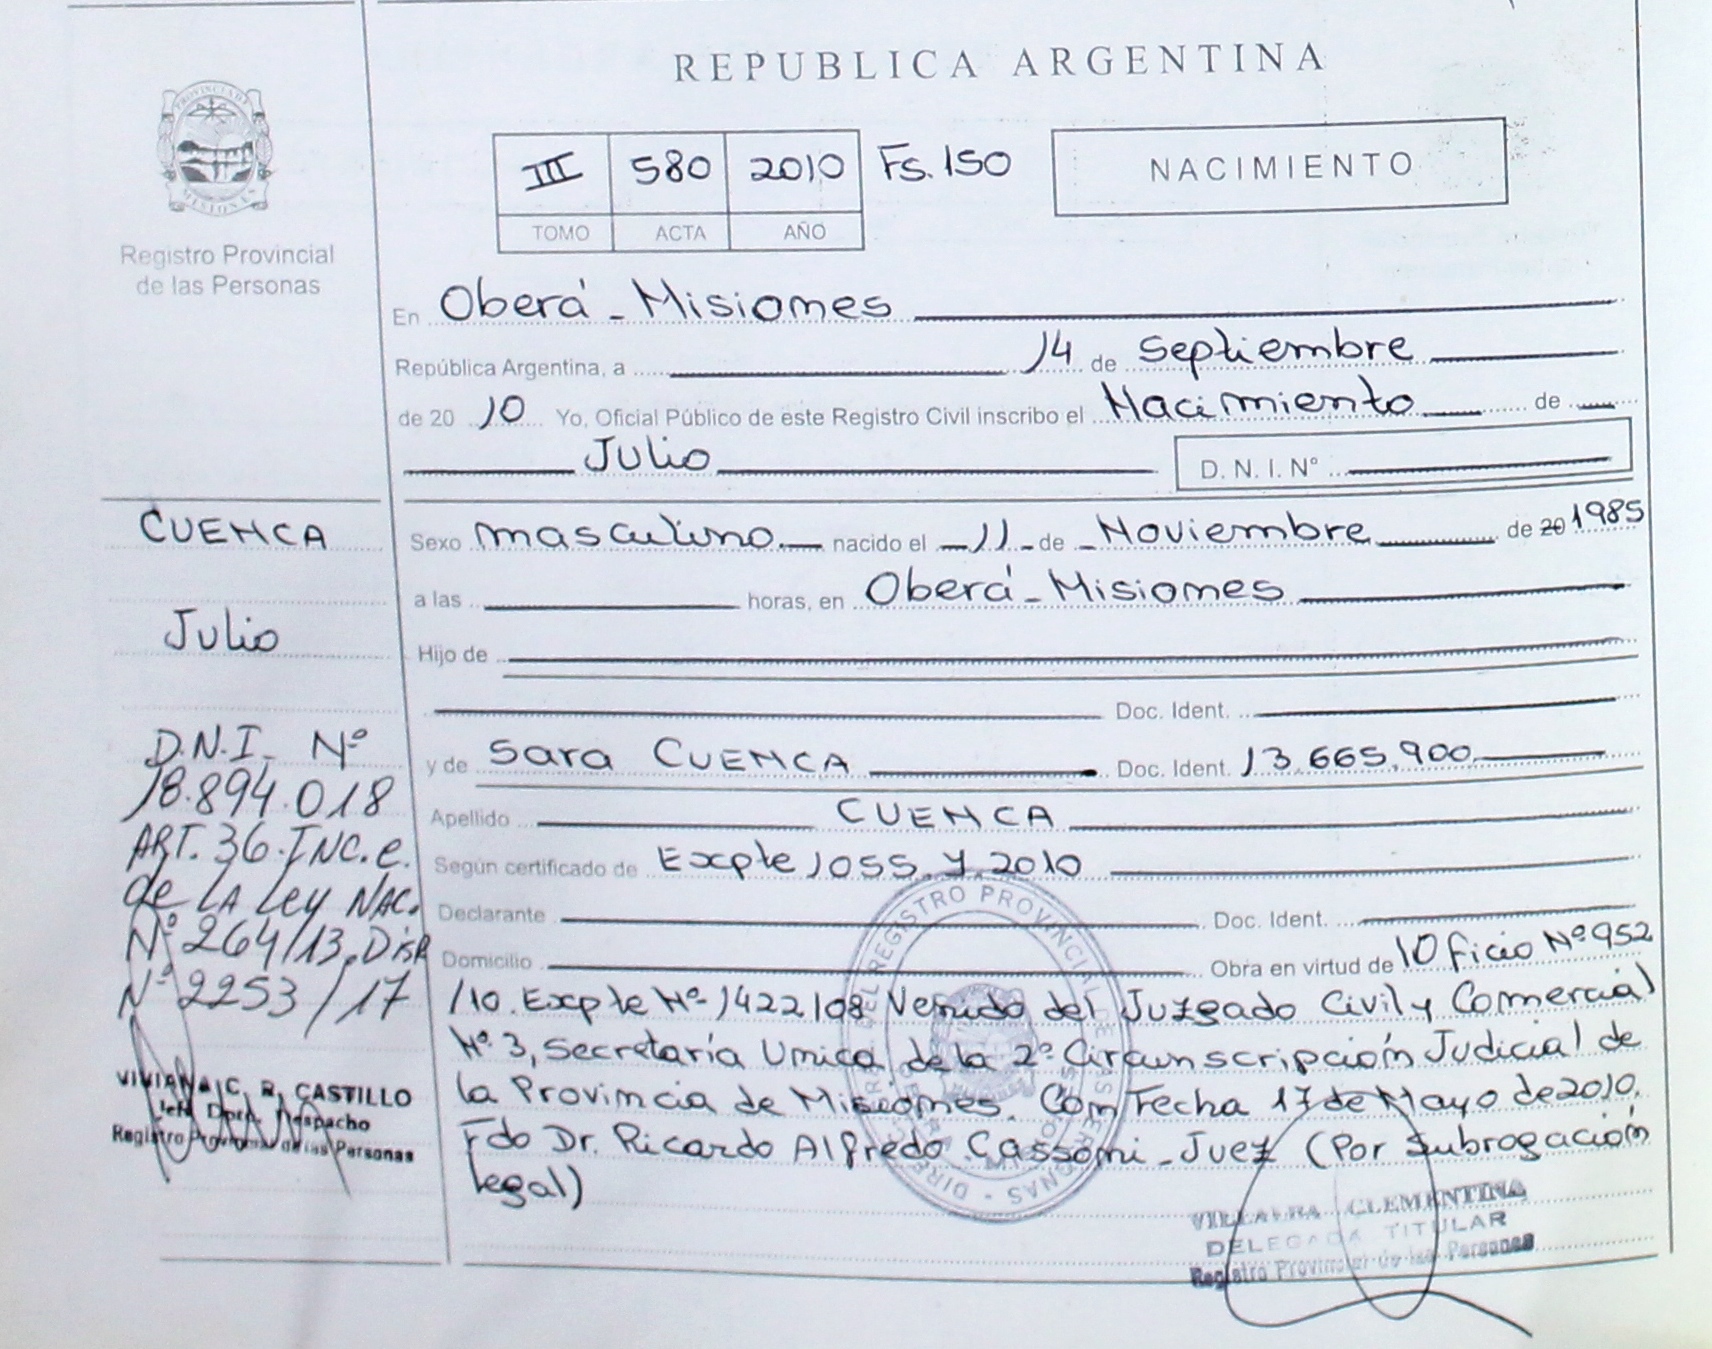 REPUBLICA ARGENTINA
PROVINCIA DE
MISIONES
Registro Provincial
de las Personas
III 580 2010 Fs. 150
TOMO ACTA AÑO
NACIMIENTO
En Oberá - Misiones
República Argentina, a 14 de Septiembre
de 20 10 Yo, Oficial Público de este Registro Civil inscribo el Nacimiento de
Julio D. N. I. N°
CUENCA
Sexo masculino nacido el 11 de Noviembre de 20 1985
a las horas, en Oberá - Misiones
Julio
Hijo de
Doc. Ident.
y de Sara CUENCA Doc. Ident. 13.665.900
Apellido CUENCA
Según certificado de Expte 1055. Y. 2010
Declarante Doc. Ident.
Domicilio Obra en virtud de Oficio Nº 952
/10. Expte Nº 1422/08 Venido del Juzgado Civil y Comercial
Nº 3, Secretaría Unica, de la 2º Circunscripción Judicial de
la Provincia de Misiones. Con Fecha 17 de Mayo de 2010.
Fdo Dr. Ricardo Alfredo Cassoni - Juez (Por Subrogación
legal)
D.N.I. Nº
18.894.018
ART. 36. INC. e.
de LA Ley NAC.
Nº 264/13. DISP.
Nº 2253/17
VIVIANA C. R. CASTILLO
Jefe Dpto. Despacho
Registro Provincial de las Personas
REGISTRO PROVINCIAL DE LAS PERSONAS
VILLALBA CLEMENTINA
DELEGADA TITULAR
Registro Provincial de las Personas